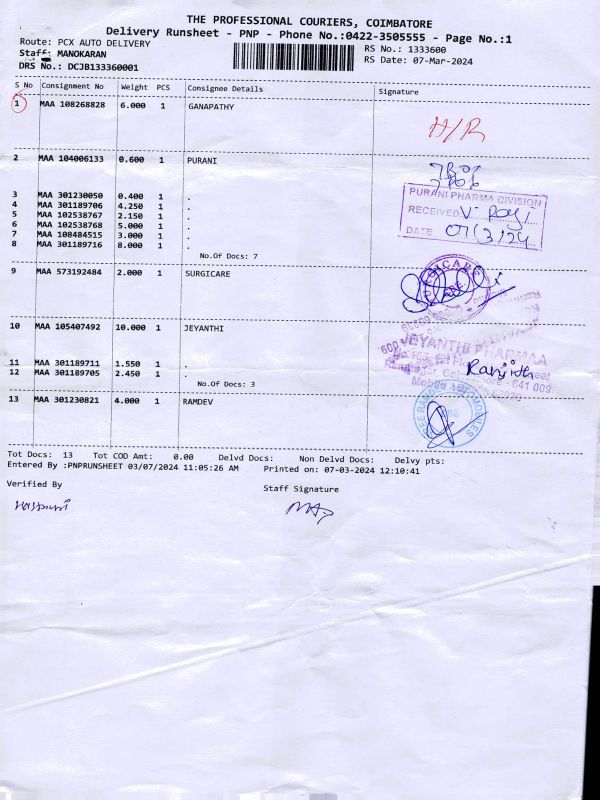 THE PROFESSIONAL COURIERS, COIMBATORE
Delivery Runsheet - PNP - Phone No.:0422-3505555 - Page No.:1
Route: PCX AUTO DELIVERY
RS No.: 1333600
Staff: MANOKARAN
RS Date: 07-Mar-2024
DRS No.: DCJB133360001
S No Consignment No Weight PCS Consignee Details Signature
1 MAA 108268828 6.000 1 GANAPATHY
H/R
2 MAA 104006133 0.600 1 PURANI
PURANI PHARMA DIVISION
3 MAA 301230050 0.400 1 .
RECEIVED
4 MAA 301189706 4.250 1 .
5 MAA 102538767 2.150 1 .
6 MAA 102538768 5.000 1 .
DATE 07/3/24
7 MAA 108484515 3.000 1 .
8 MAA 301189716 8.000 1 .
No.Of Docs: 7
9 MAA 573192484 2.000 1 SURGICARE
10 MAA 105407492 10.000 1 JEYANTHI
JEYANTHI PHARMAA
11 MAA 301189711 1.550 1 .
Ranjith
12 MAA 301189705 2.450 1 .
No.Of Docs: 3
13 MAA 301230821 4.000 1 RAMDEV
Tot Docs: 13 Tot COD Amt: 0.00 Delvd Docs: Non Delvd Docs: Delvy pts:
Entered By :PNPRUNSHEET 03/07/2024 11:05:26 AM Printed on: 07-03-2024 12:10:41
Verified By
Staff Signature